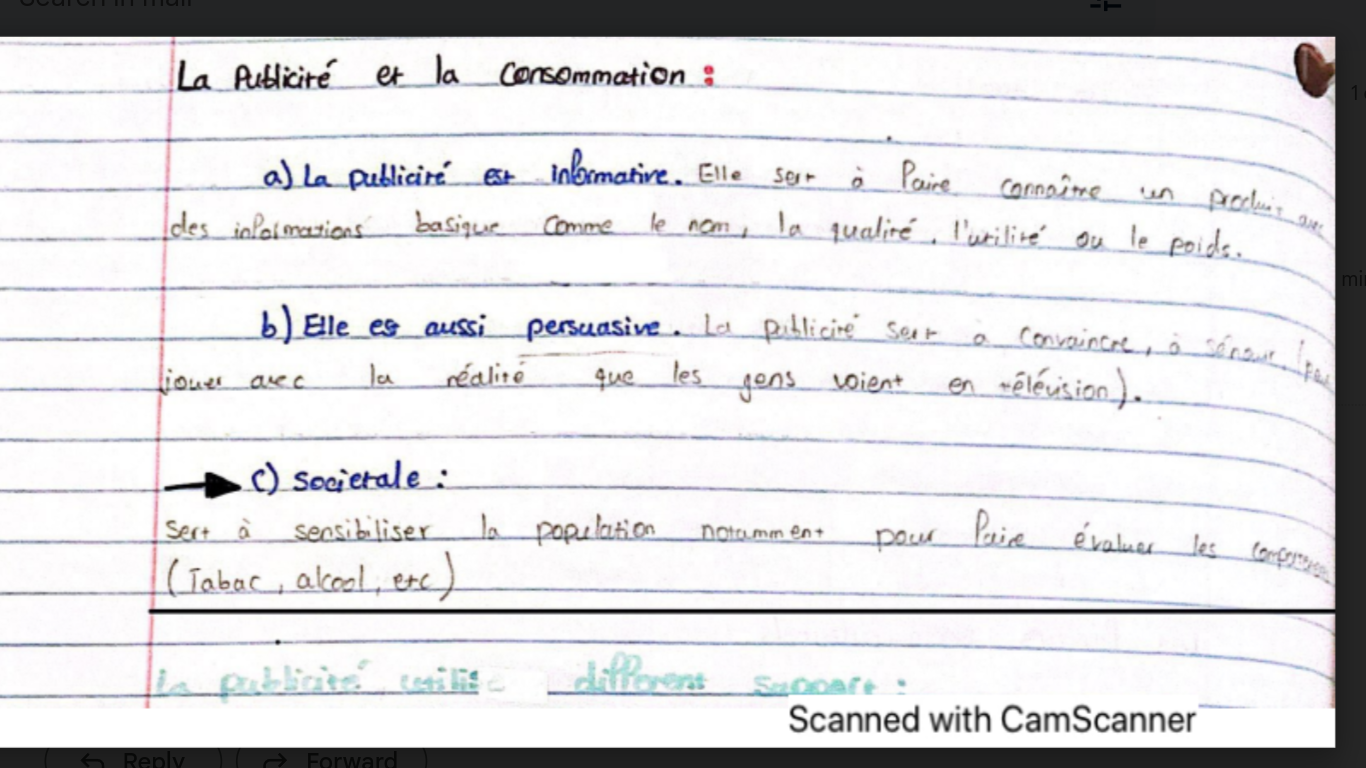 Search in mail
La Publicité et la Consommation :
a) La publicité est informative. Elle sert à faire connaître un produit avec
des informations basique comme le nom, la qualité, l'utilité ou le poids.
b) Elle es aussi persuasive. La publicité sert à convaincre, à
jouer avec la réalité que les gens voient en télévision).
c) Societale :
sert à sensibiliser la population notamment pour faire évaluer les
(Tabac, alcool, etc)
La publicité utilise different support :
Scanned with CamScanner
Reply Forward